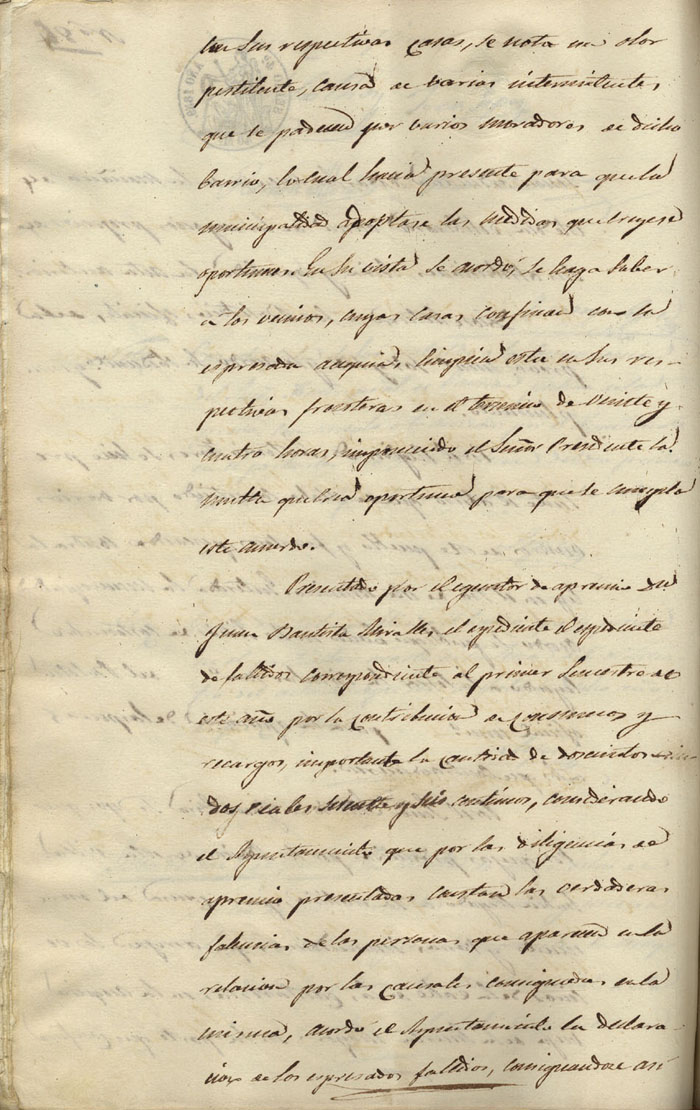 en sus respectivas casas, se nota un olor
pestilente, causa de varias intermitentes
que se padecen por varios moradores de dicho
barrio, lo cual hacia presente para que la
municipalidad adoptase las medidas que creyese
oportunas. En su vista se acordó, se haga saber
a los vecinos, cuyas casas confinan con la
espresada acequia, limpien esta en sus res-
pectivas fronteras en el termino de veinte y
cuatro horas, imponiendo el Señor Presidente la
multa que crea oportuna para que se cumpla
este acuerdo.
Presentado por el egecutor de apremio Dn
Juan Bautista Miralles, el espediente
de fallidos correspondiente al primer Semestre de
este año por la contribucion de consumos y
recargos, importante la cantidad de doscientos
dos reales setenta y seis centimos, considerando
el Ayuntamiento que por las diligencias de
apremio presentadas constan las verdaderas
falencias de las personas que aparecen en la
relacion por las causales consignadas en la
misma, acordó el Ayuntamiento la declara
cion de los espresados fallidos, consignandose asi